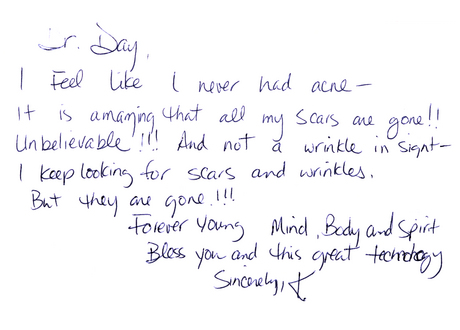 Dr. Day,
I Feel like I never had acne—
It is amazing that all my scars are gone!!
Unbelievable!!! And not a wrinkle in signt—
I keep looking for scars and wrinkles.
But they are gone!!!
Forever Young Mind, Body and Spirit
Bless you and this great technology
Sincerely,